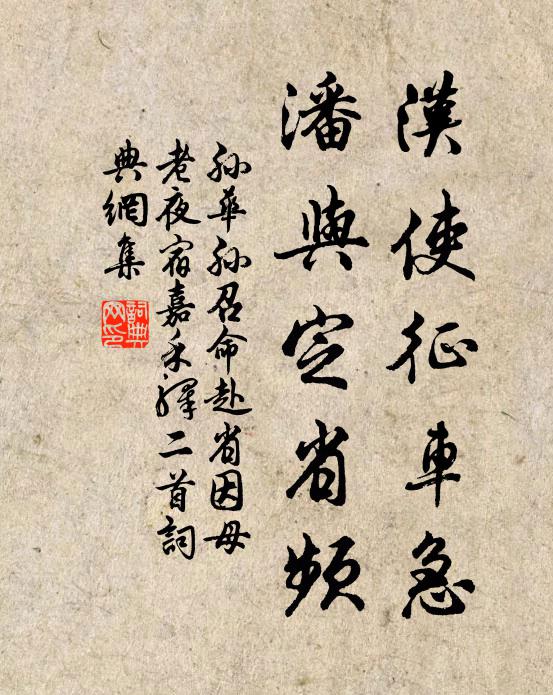 漢使征車急
潘輿定省頻
孫華孫召命赴省因母
老夜宿嘉禾驛二首詞
典網集
詞典
网印